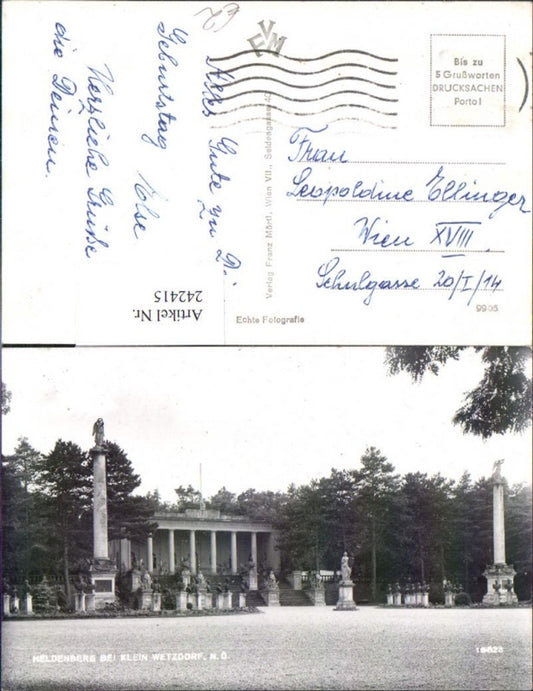 Alles Gute zu D.
Geburtstag
Herzliche Grüße
die Deinen.
VFM
Verlag Franz Mörtl, Wien VII.,
Bis zu
5 Grußworten
DRUCKSACHEN
Porto!
Frau
Leopoldine Ellinger
Wien XVIII.
Schulgasse 20/I/14
9905
Echte Fotografie
Artikel Nr.
242415
HELDENBERG BEI KLEIN WETZDORF, N.Ö.